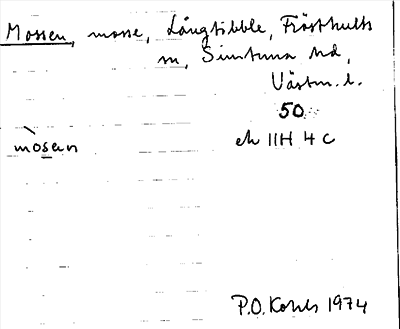 Mossen, mosse, Långtibble, Frösthults
sn, Simtuna hd,
Västm. l.
50
mòsen
ek 11H 4 c
P.O. Kohls 1974